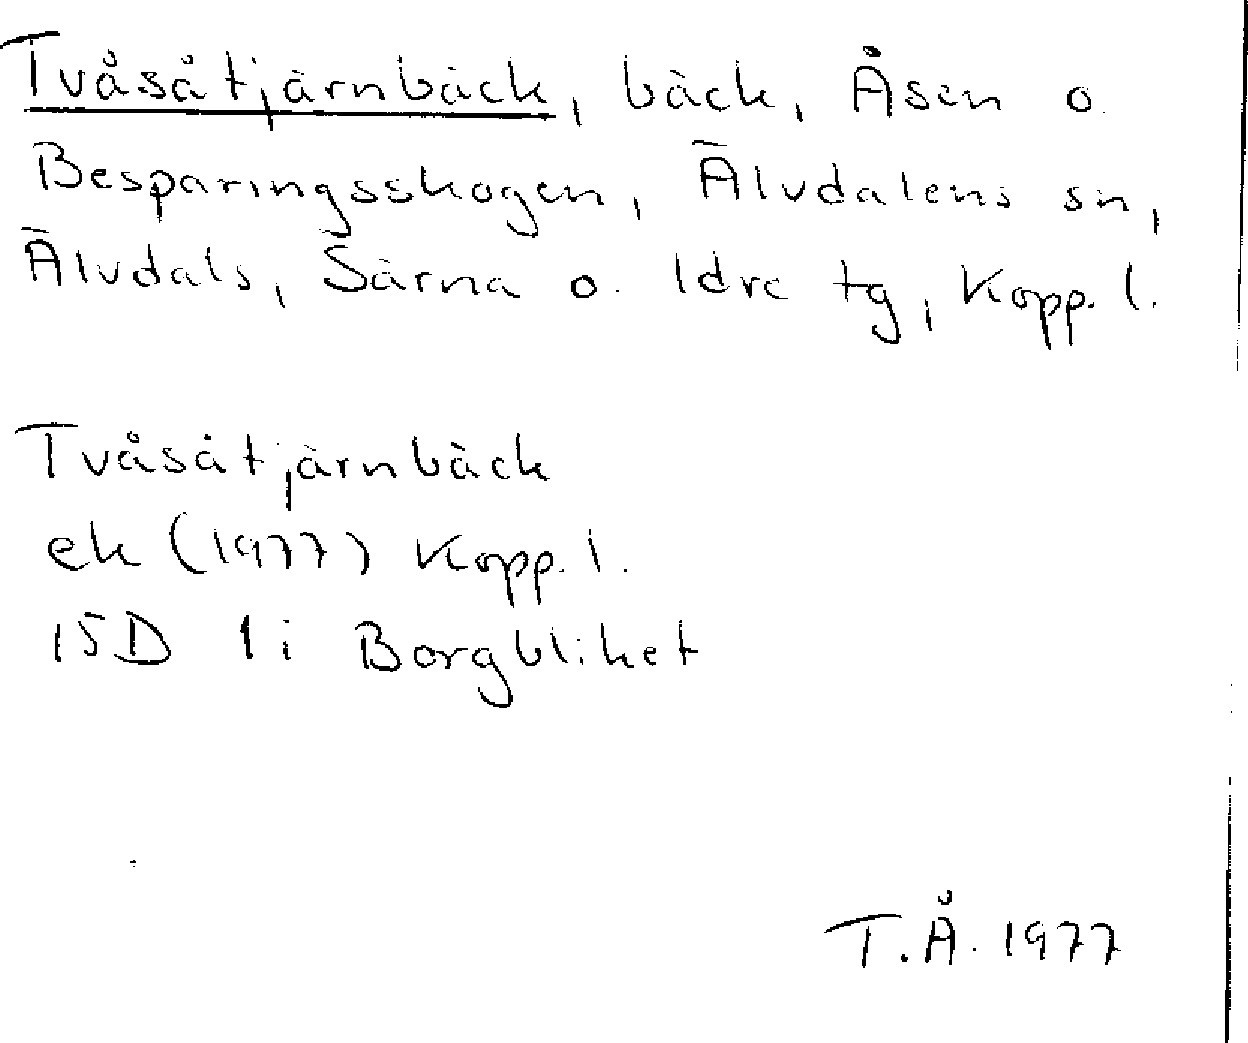 Tvåsåtjärnbäck, bäck, Åsen o.
Besparingsskogen, Älvdalens sn,
Älvdals, Särna o. Idre tg, Kopp. l.
Tvåsåtjärnbäck
ek (1977) Kopp. l.
15D 1i Borgbliket
T.Å. 1977